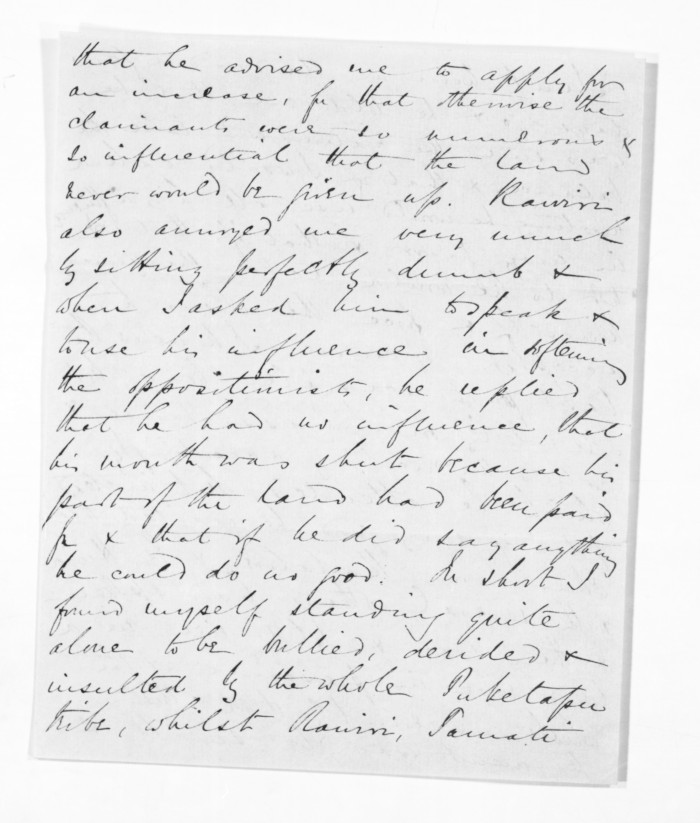 that he advised me to apply for
an increase, for that otherwise the
claimants were so numerous &
so influential that the land
never would be given up. Rawiri
also annoyed me very much
by sitting perfectly dumb &
when I asked him to speak &
to use his influence in softening
the oppositionists, he replied
that he had no influence, that
his mouth was shut because his
part of the land had been paid
for & that if he did say anything
he could do no good. In short I
found myself standing quite
alone to be bullied, derided &
insulted by the whole Puketapu
tribe, whilst Rawiri, Tamati